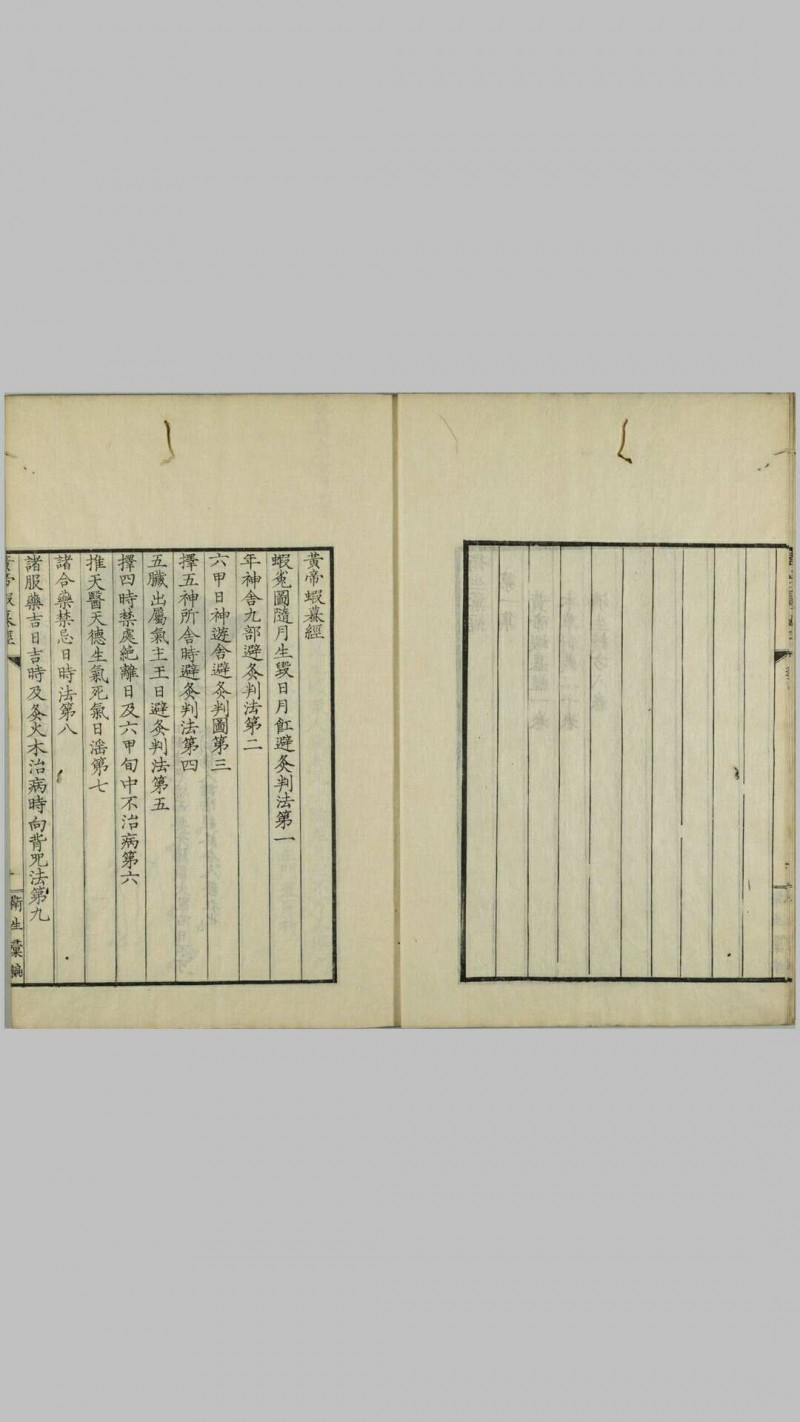 黃帝蝦蟇經
蝦兎圖隨月生毀日月蝕避灸判法第一
年神舍九部避灸判法第二
六甲日神遊舍避灸判圖第三
擇五神所舍時避灸判法第四
五臟出屬氣主王日避灸判法第五
擇四時禁處絶離日及六甲旬中不治病第六
推天醫天德生氣死氣日滛第七
諸合藥禁忌日時法第八
諸服藥吉日吉時及灸火木治病時向背咒法第九
黃帝蝦蟇經
衛生彙編